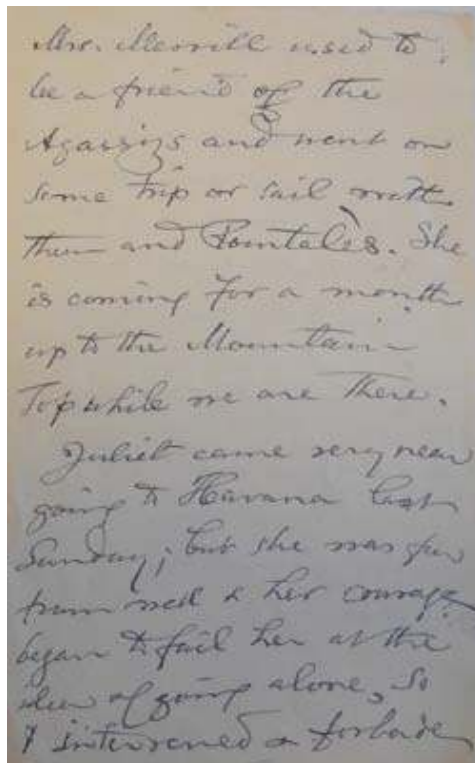 Mrs. Merrill used to
be a friend of the
Agassizs and went on
some trip or sail with
them and Pourtalès. She
is coming for a month
up to the Mountain
Top while we are there.
Juliet came very near
going to Havana last
Sunday; but she was far
from well & her courage
began to fail her at the
idea of going alone, so
I intervened & forbade